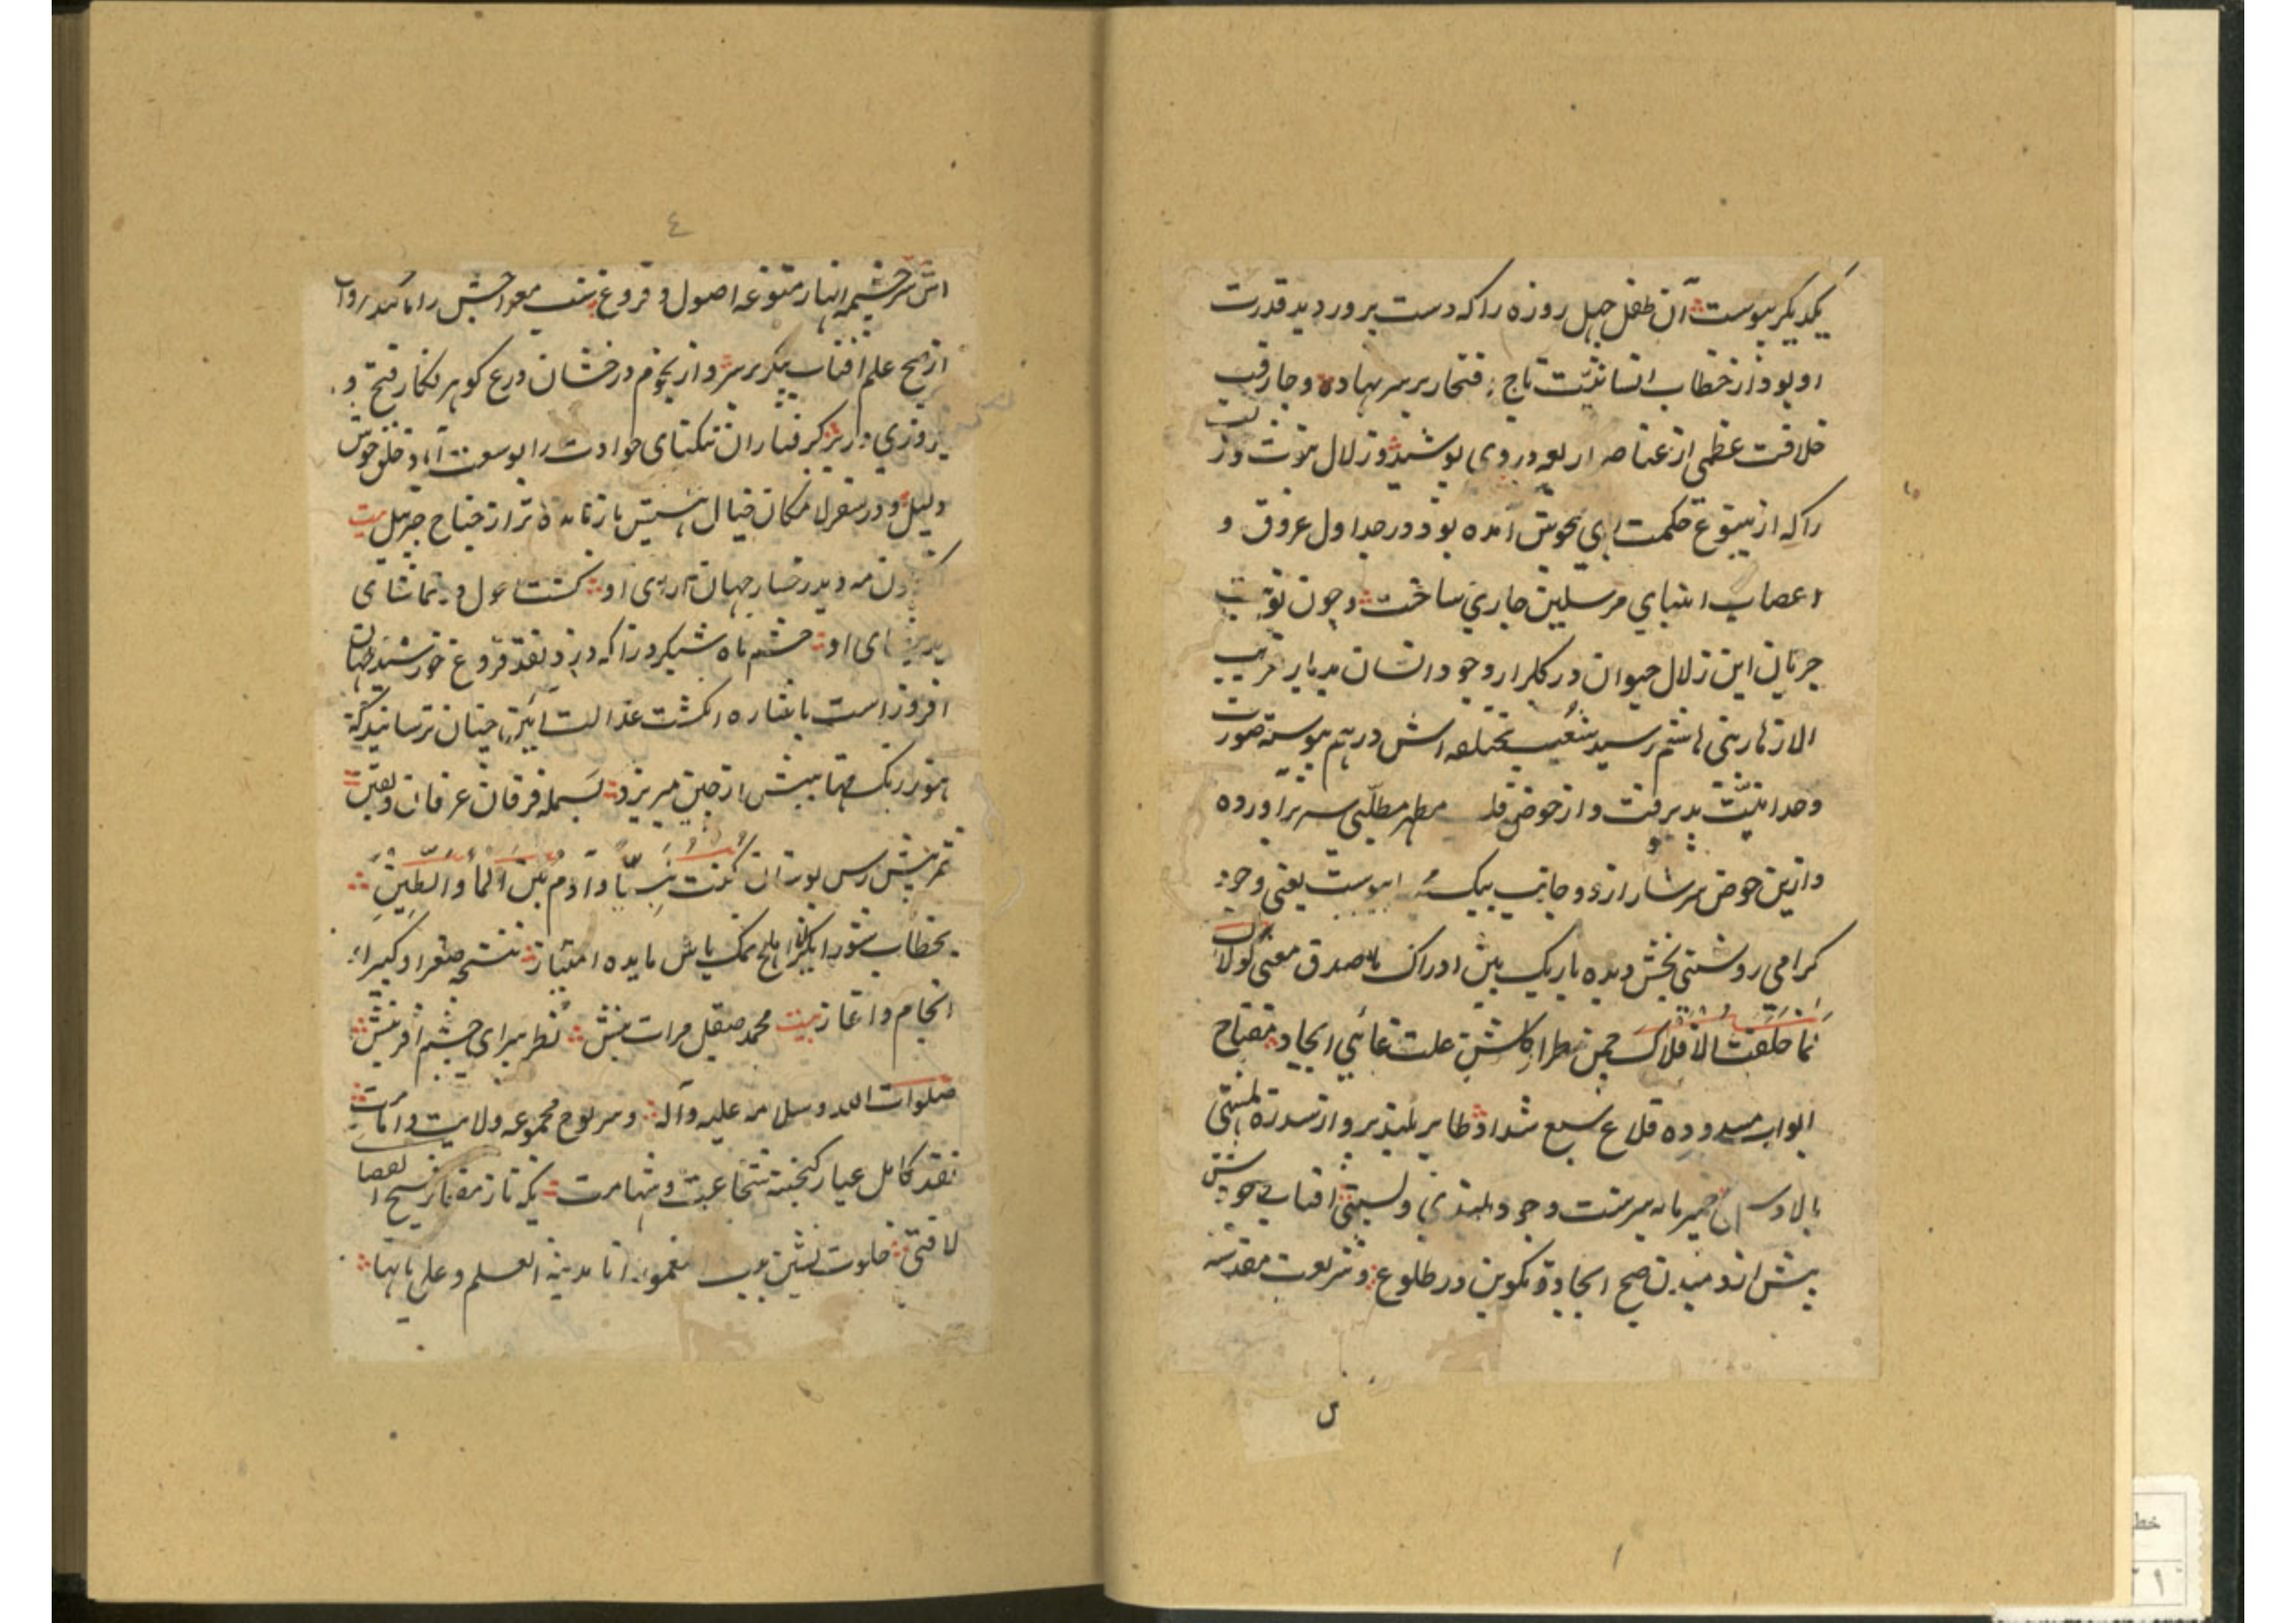 یکدیگر پیوست آن طفل چهل روزه را که دست پرورد ید قدرت
او بود از خطاب انسانیت تاج افتخار بر سر نهاده و چارقب
خلافت عظمی از عناصر اربعه در وی پوشید و زلال نبوت
را که از ینبوع حکمت ابدی بجوش آمده بود در جداول عروق و
اعصاب انبیای مرسلین جاری ساخت و چون نوبت
جریان این زلال حیوان در گلزار وجود انسان بدیار
الازهار بنی هاشم رسید شعب مختلفه اش در هم پیوسته صورت
وحدانیت پذیرفت و از حوض مطهر مطلبی سر برآورده
و ازین حوض سرشار از دو جانب پیوست یعنی وجود
گرامی روشنی بخش دیده باریک بین ادراک صدق معنی لولاک
لما خلقت الافلاک چمن طراز گلشن علت غائی ایجاد مفتاح
ابواب مسدوده قلاع سبع شداد طایر بلند پرواز سدرة المنتهی
بالا خمیرمایه سرشت وجود بلندی و پستی آفتاب
پیش از دمیدن صبح ایجاد و تکوین در طلوع و شریعت مقدسه
س
٤
اش سرچشمه انهار متنوعه اصول و فروع معراجش را
از صبح علم آفتاب پیکر بر سر و از نجوم درخشان درع گوهر نگار فتح و
روزی در بر گرفتاران تنگنای حوادث را بوسعت آباد خلق خوش
دلیل و در سفر لامکان خیال باز مانده تر از جناح جبریل بیت
مه و ید رخسار جهان آرای او گشت اول تماشای
ید بیضای او چشم ماه شبگرد را که دزد نقد فروغ خورشید جهان
افروز است باشاره انگشت عدالت آیین چنان ترسانید که
هنوز رنگ مهتابیش از جبین میریزد بسمله فرقان عرفان و یقین
ثمر پیش رس بوستان کنت نبیا و آدم بین الماء والطین
بخطاب شورانگیز انا املح نمک پاش مایده امتیاز نتیجه صغرا و کبرای
انجام و آغاز بیت محمد صیقل مرات بینش نظر پیرای چشم آفرینش
صلوات الله و سلامه علیه و آله و سر لوح مجموعه ولایت و امامت
نقد کامل عیار گنجینه شجاعت و شهامت یکه تاز مضمار
لا فتی خلوت نشین انا مدینة العلم و علی بابها